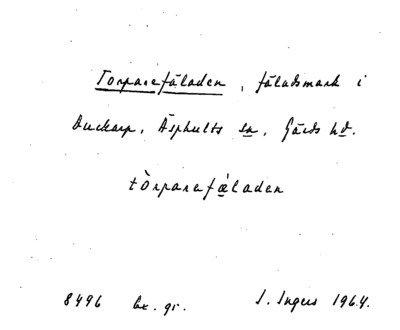 Torparefäladen, fäladsmark i
Duckarp, Äsphults sn, Gärds hd.
tòrparefæ̀laden
8496 bx. gr. I. Ingers 1964.